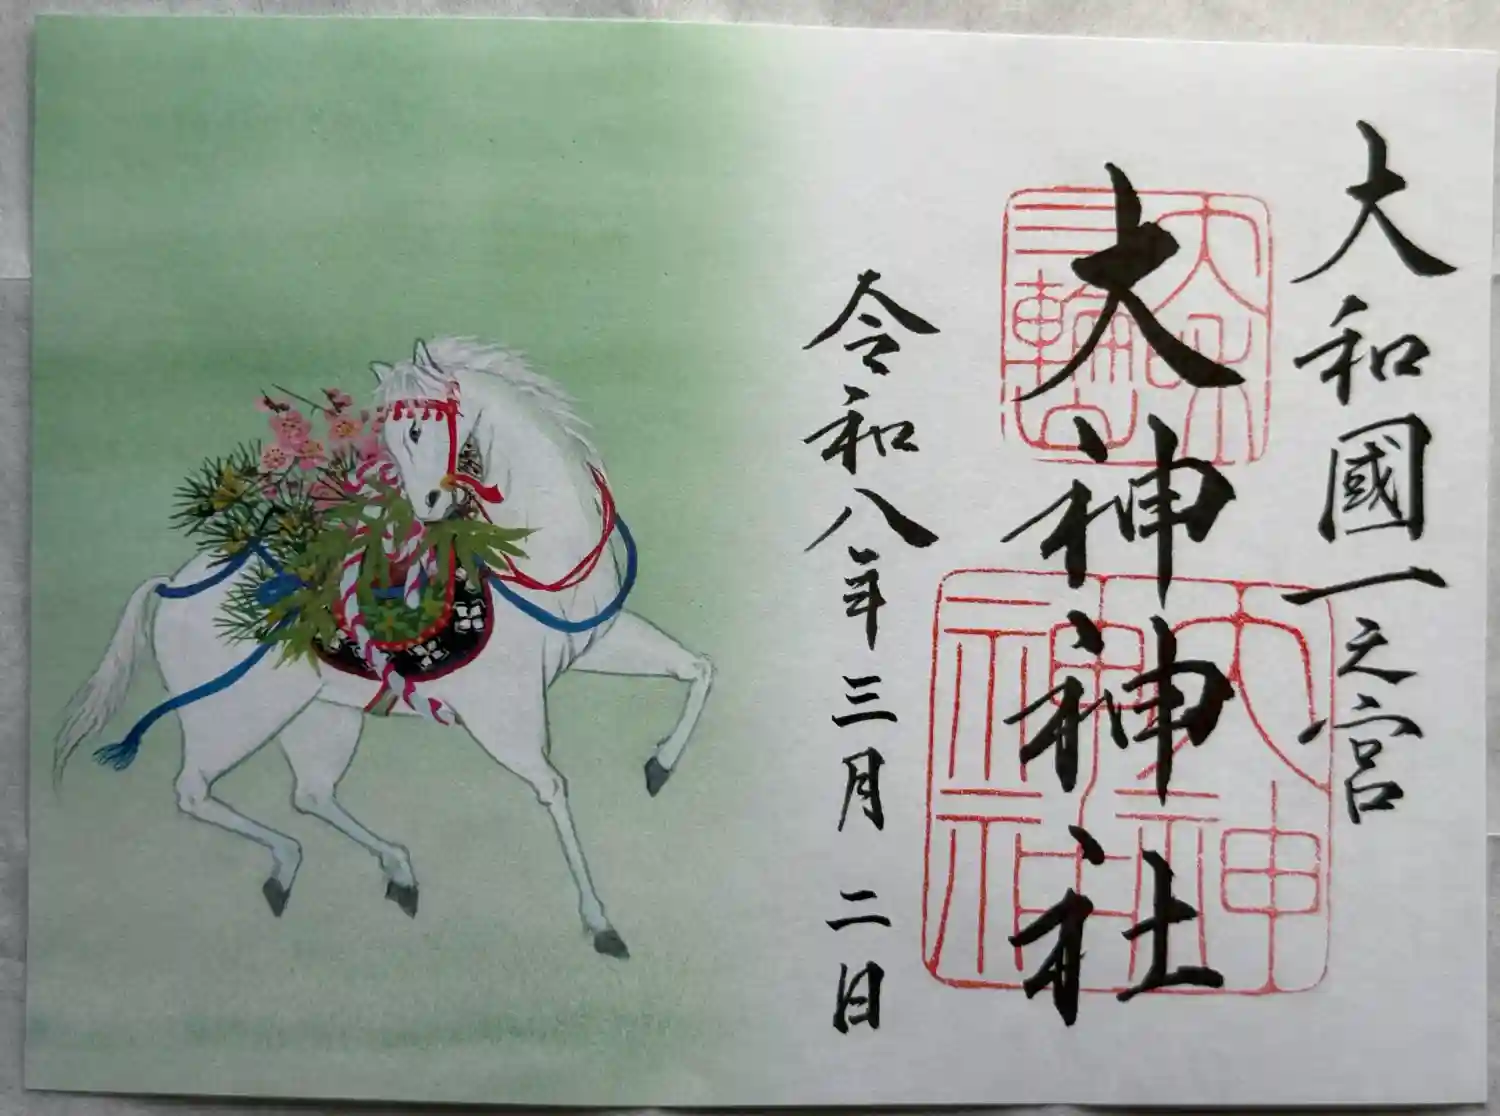 大和國一之宮
大神神社
令和八年三月二日
三輪山
大神神社